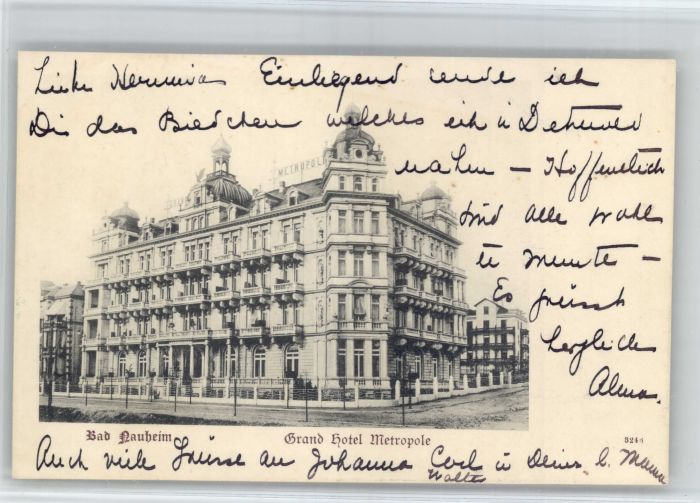 Liebe Hermina Einliegend sende ich
Dir das Bildchen welches ich in Detmold
nahm – Hoffentlich
sind alle wohl
u munter –
Es grüsst
herzlichst
Alma.
METROPOLE
Bad Nauheim
Grand Hotel Metropole
Auch viele Grüsse an Johanna Carl u Deine l. Mama
Walter